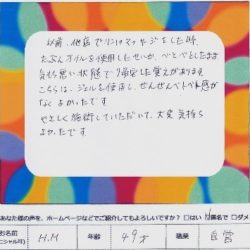 以前、他店でリンパマッサージをした時、
たぶんオイルを使用したせいか、べとべとしたまま
気持ち悪い状態で帰宅した覚えがあります。
こちらは、ジェルを使用し、ぜんぜんベトベト感が
なくよかったです。
やさしく施術していただいて、大変気持ち
よかったです
あなた様の声を、ホームページなどでご紹介してもよろしいですか? □はい □匿名で □ダメ
お名前 H.M 年齢 49才 職業 自営
イニシャル可)